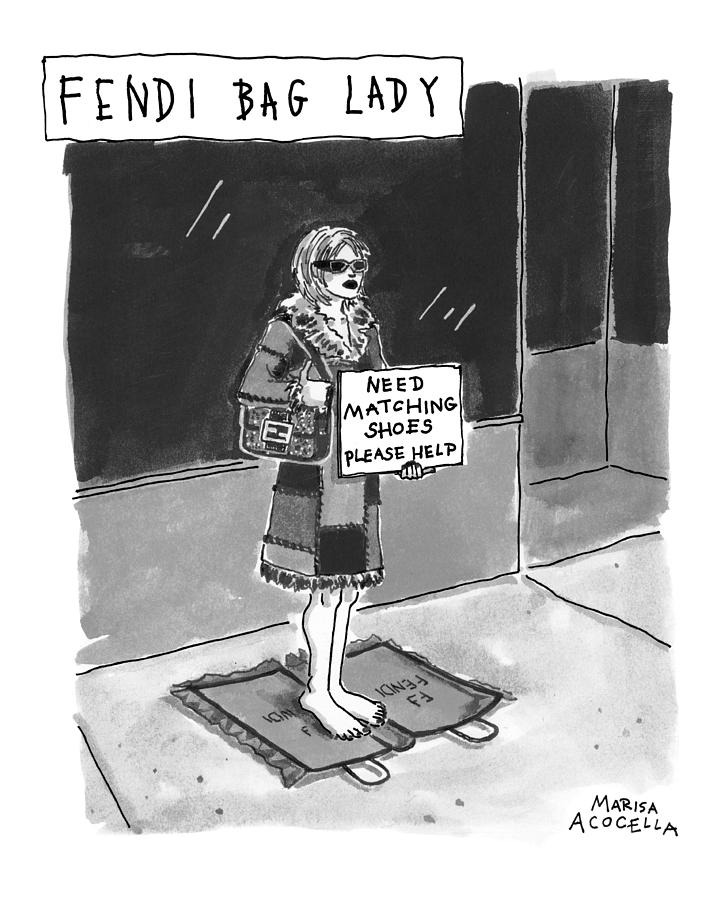 FENDI BAG LADY
NEED
MATCHING
SHOES
PLEASE HELP
NDI
F
FENDI
FF
MARISA
ACOCELLA